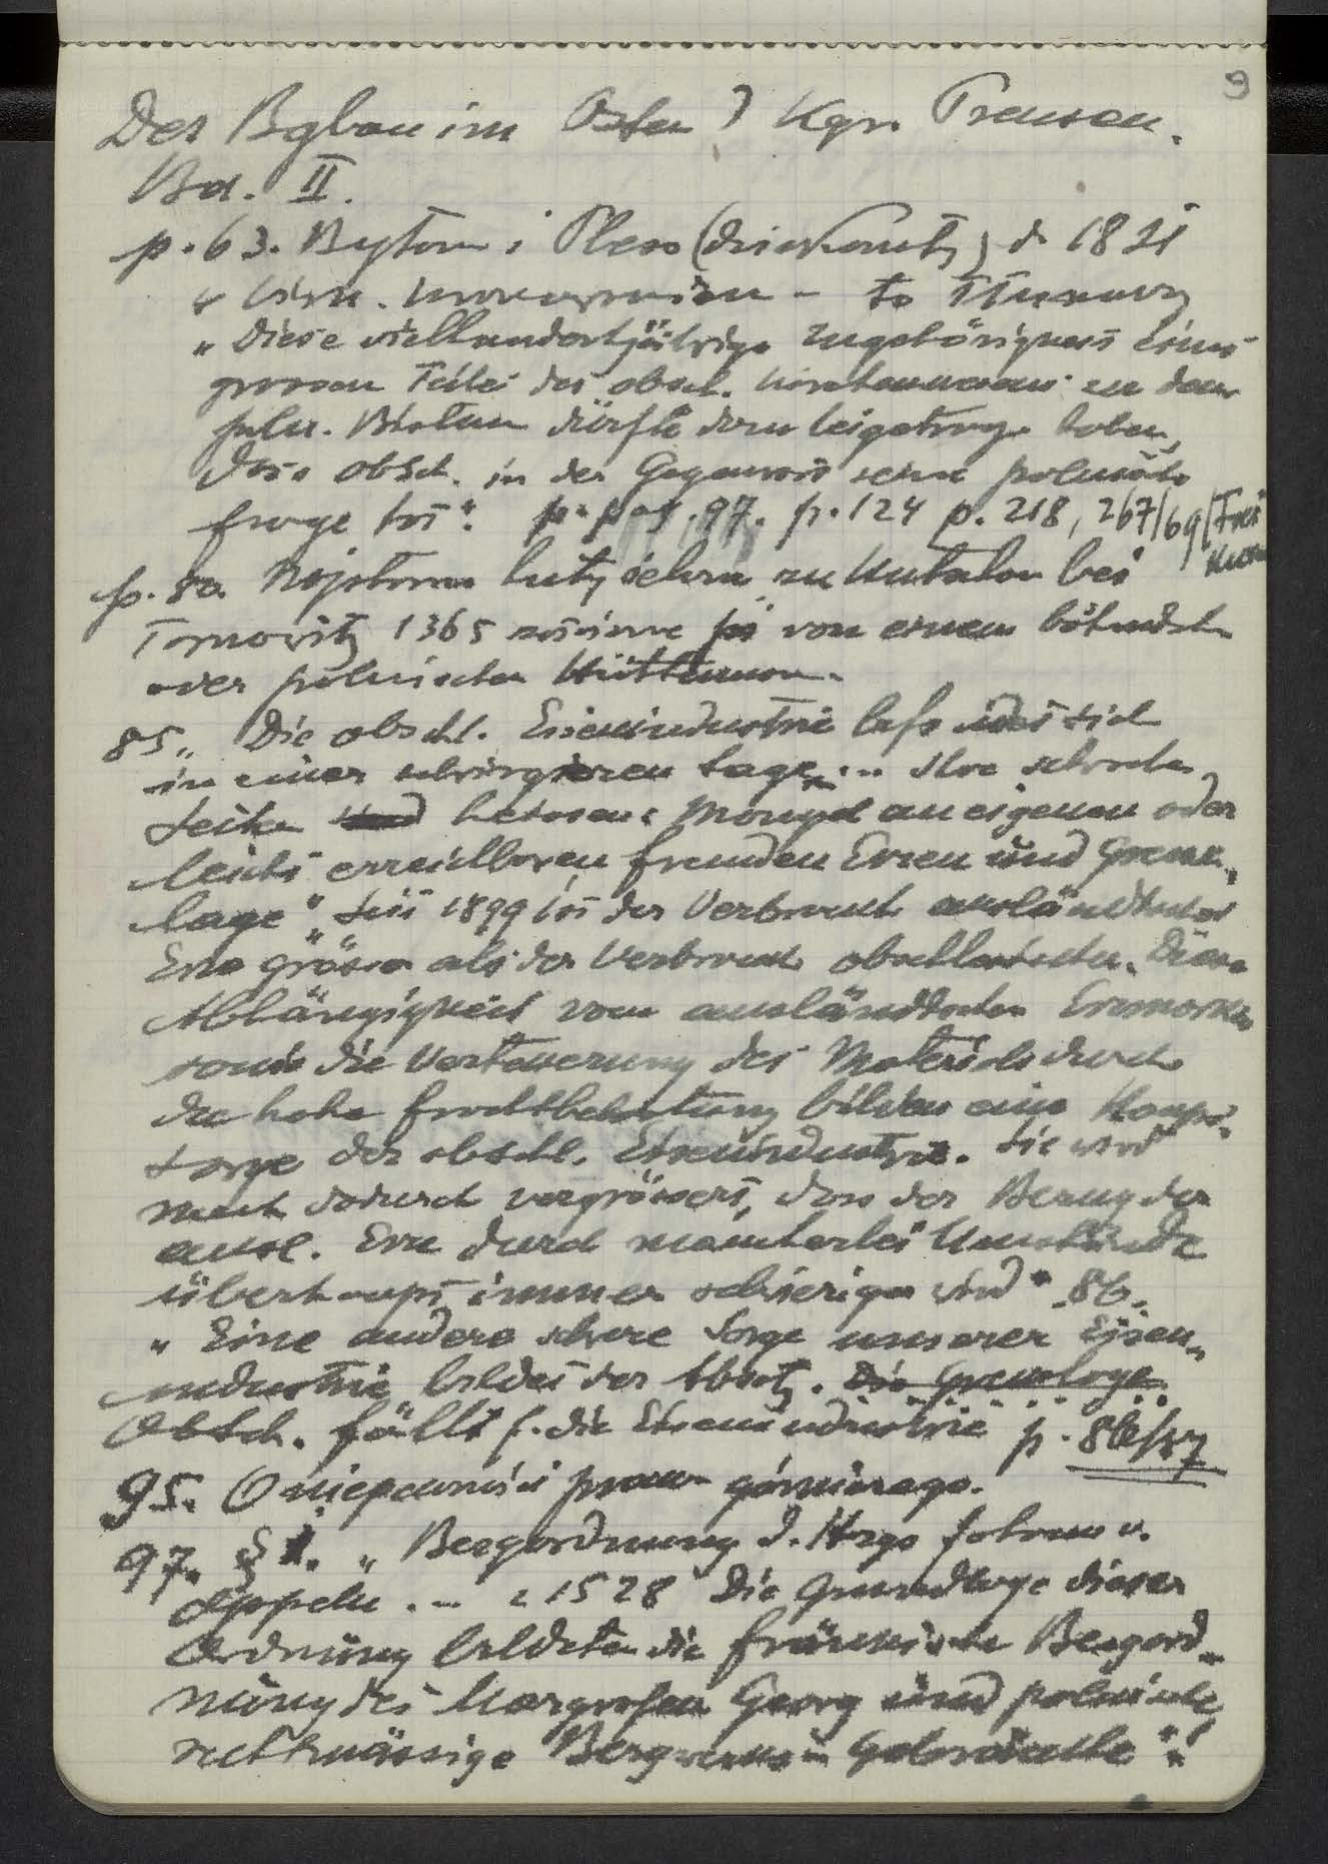 9
Der Bgbau im Osten d Kgr. Preusen.
Bd. II.
p. 63. Bytom i Pless (dziekanaty) d 1821
w bisk. krakowskim - to tłumaczy
"Diese vielhundertjährige Zugehörigkeit eines
grossen Teiles des obschl. Kirchenwesens zu dem
poln. Bistum dürfte dazu beigetrage haben,
dass obsch. in der Gegenwart seine polnische
frage hat". p. 97. p. 124 p. 218, 267/69 (Frei
p. 80. Najstarsza huta żelaza zu Kutschau bei
Tarnowitz 1365 von einem böhmisch
oder polnischen Hüttenman.
85. "Die obschl. Eisenindustrie befindet sich
in einer schwierigeren Lage ... Ihre schwache
Seite heissen: Mangel an eigenen oder
leicht erreichbaren fremden Erzen und Grenz-
lage", "Seit 1899 ist der Verbrauch ausländischer
Erze grösser als der Verbrauch obschlesischer. Diese
Abhängigkeit vom ausländischen Erzmarkte
sowie die Verteuerung des Materials durch
die hohe frachtbelastung bilden eine Haupt-
sorge der obschl. Eisenindustrie. Sie wird
noch dadurch vergrössert, dass der Bezug der
ausl. Erze durch mancherlei Umstände
überhaupt immer schwieriger wird". 86.
"Eine andere schwere Sorge unserer Eisen-
industrie bildet der Absatz. Die Grenzlage
Obsch. fällt f. die Eisenindustrie p. 86/87
95. O niepewności prawa górniczego.
97. § 1. "Bergordnung d. Hrzgs Johann v.
Oppeln ... z 1528 Die Grundlage dieser
Ordnung bildeten die fränkische Bergord-
nung des Margrafen Georg und polnische
rechtmässige Bergwerks- Gebräuche"!